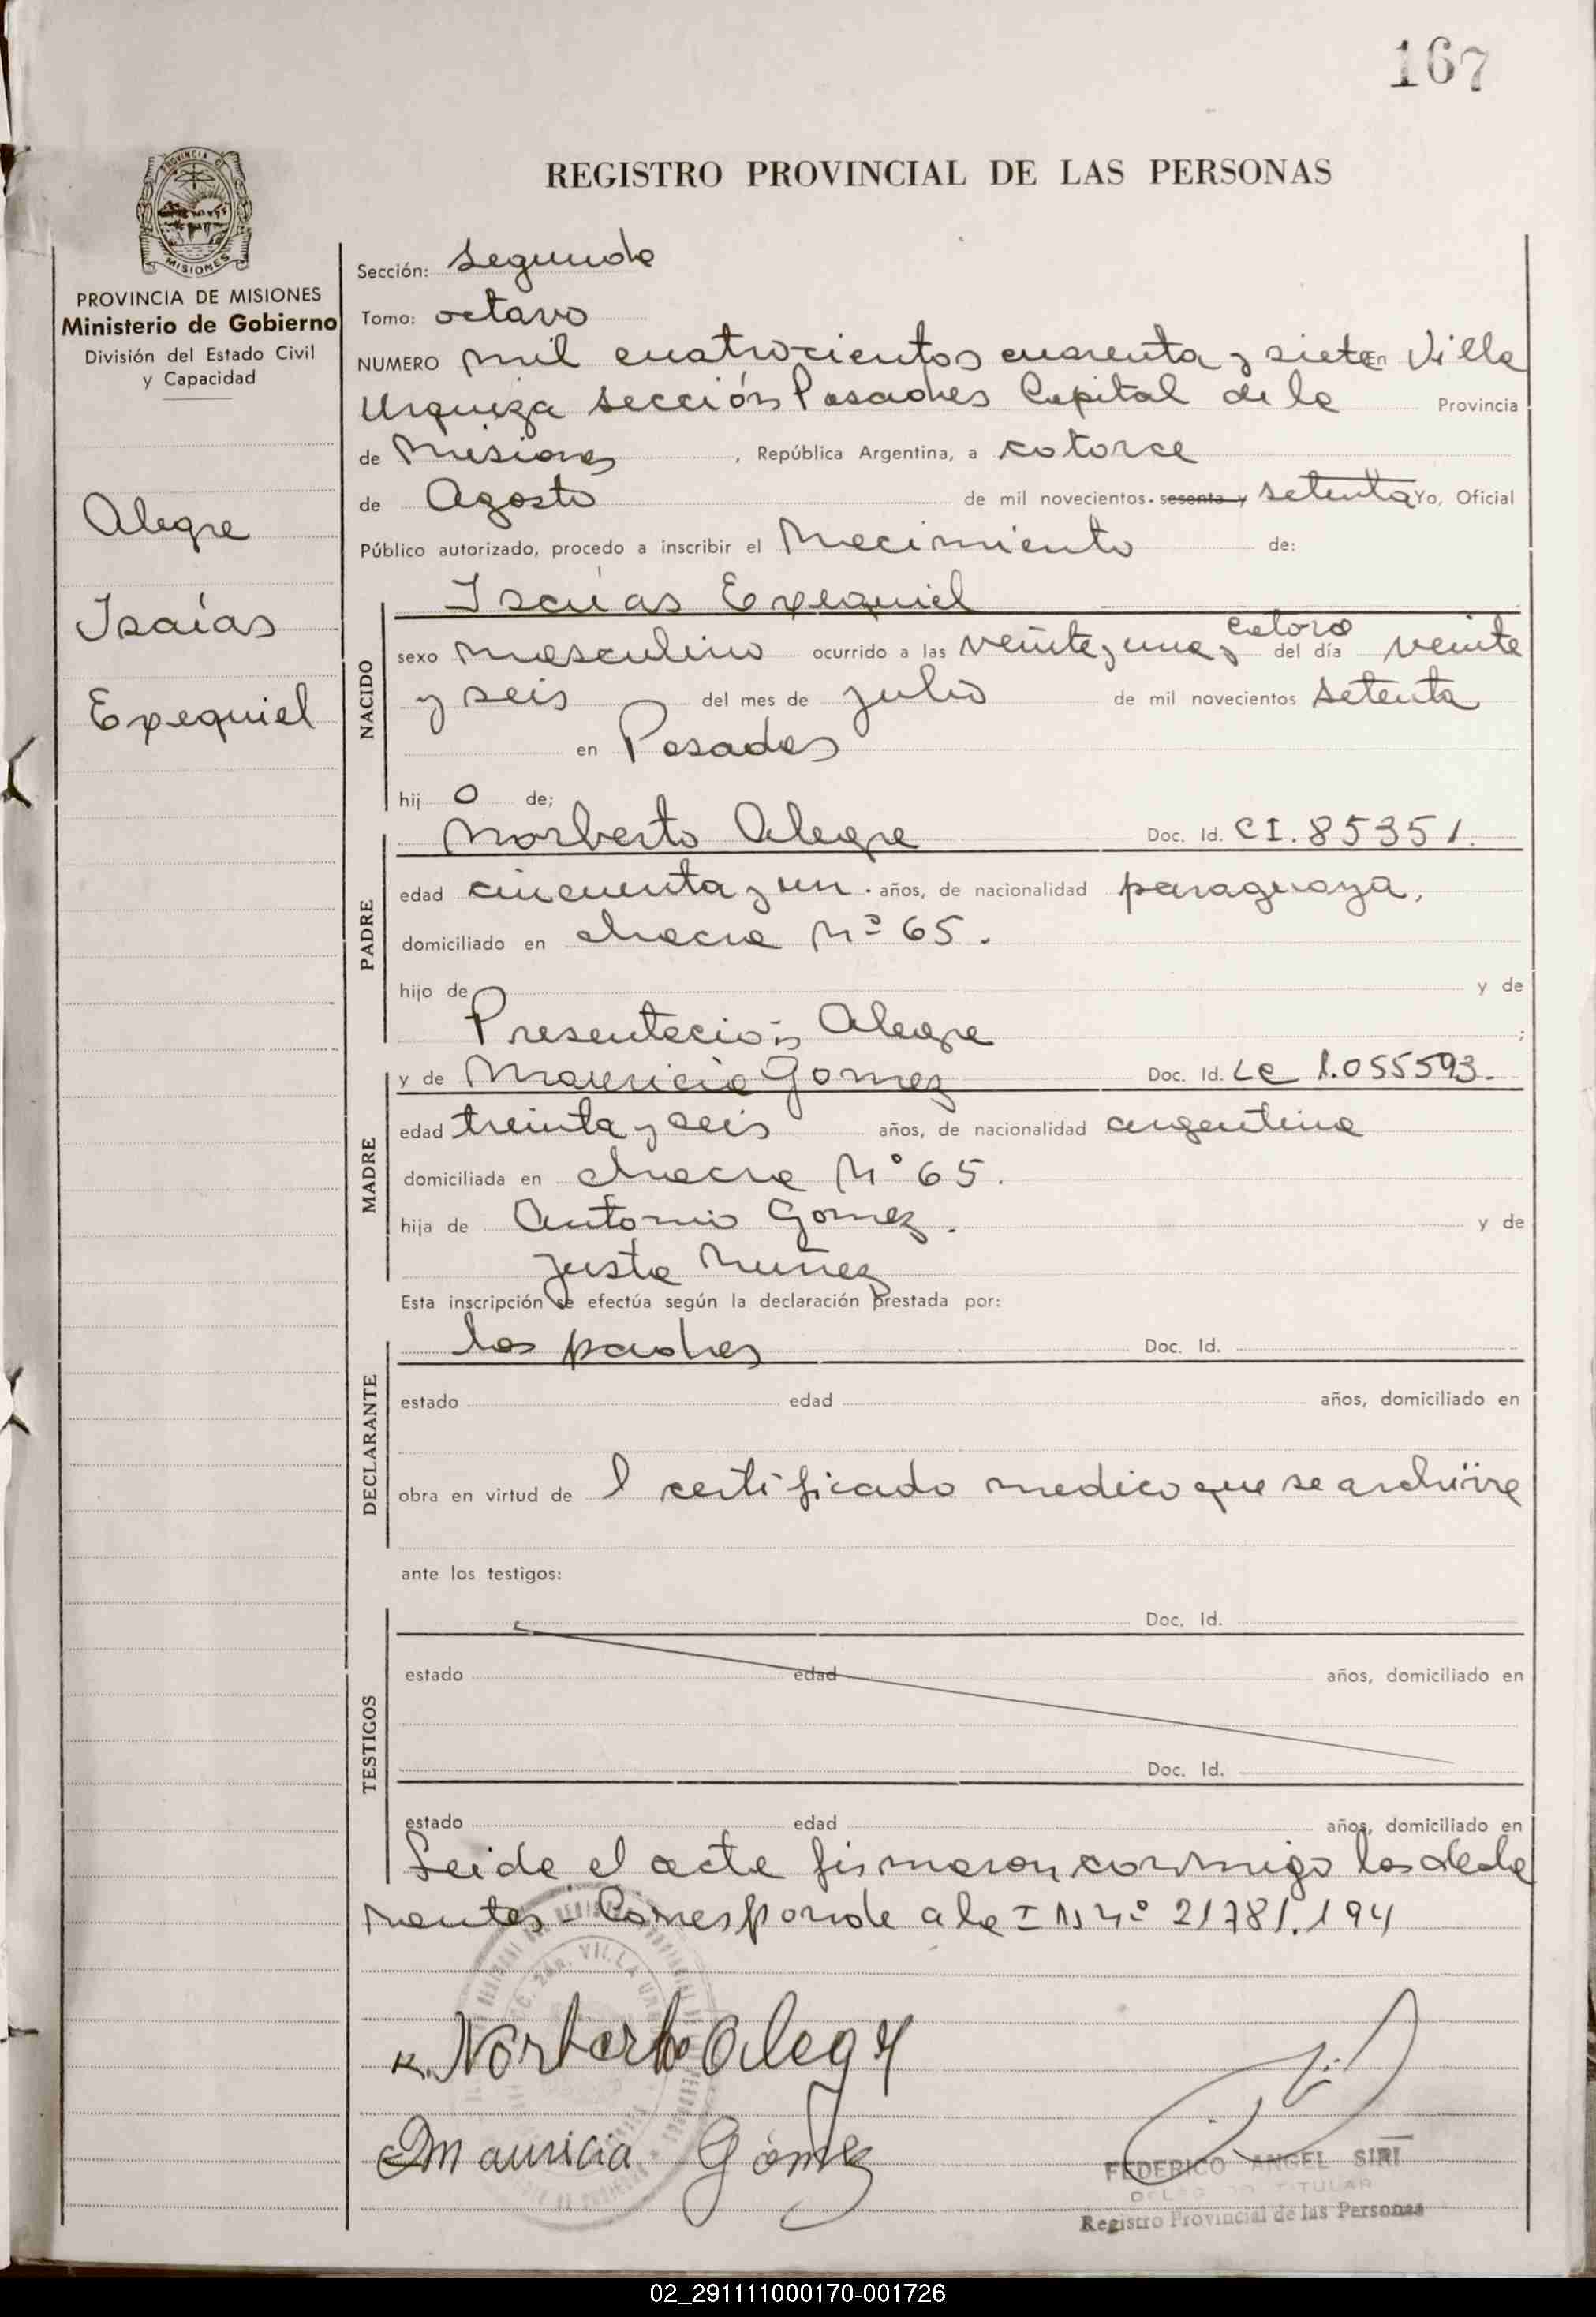 167
REGISTRO PROVINCIAL DE LAS PERSONAS
PROVINCIA DE MISIONES
Ministerio de Gobierno
División del Estado Civil
y Capacidad
Alegre
Isaías
Exequiel
Sección: Segunda
Tomo: octavo
NUMERO mil cuatrocientos cuarenta y siete en Villa
Urquiza sección Posadas Capital de la Provincia
de Misiones, República Argentina, a catorce
de Agosto de mil novecientos sesenta y setenta Yo, Oficial
Público autorizado, procedo a inscribir el Nacimiento de:
Isaías Exequiel
NACIDO
catorce
sexo masculino ocurrido a las veinte y una y del día veinte
y seis del mes de julio de mil novecientos setenta
en Posadas
hijo de;
Norberto Alegre Doc. Id. CI. 85351.
PADRE
edad cincuenta y un . años, de nacionalidad paraguaya,
domiciliado en chacra Nº 65.
hijo de y de
Presentación Alegre ;
y de Mauricia Gomez Doc. Id. LC 1.055593.
MADRE
edad treinta y seis años, de nacionalidad argentina
domiciliada en chacra Nº 65.
hija de Antonio Gomez. y de
Justa Nuñez
Esta inscripción se efectúa según la declaración prestada por:
los padres Doc. Id.
DECLARANTE
estado edad años, domiciliado en
obra en virtud de l certificado medico que se archiva
ante los testigos:
TESTIGOS
Doc. Id.
estado edad años, domiciliado en
Doc. Id.
estado edad años, domiciliado en
Leida el acta firmaron conmigo los decla
rantes - Corresponde a la I Nº 21781.194
Norberto Alegre
Mauricia Gómez
FEDERICO ANGEL SIRI
DELEGADO TITULAR
Registro Provincial de las Personas
02_291111000170-001726